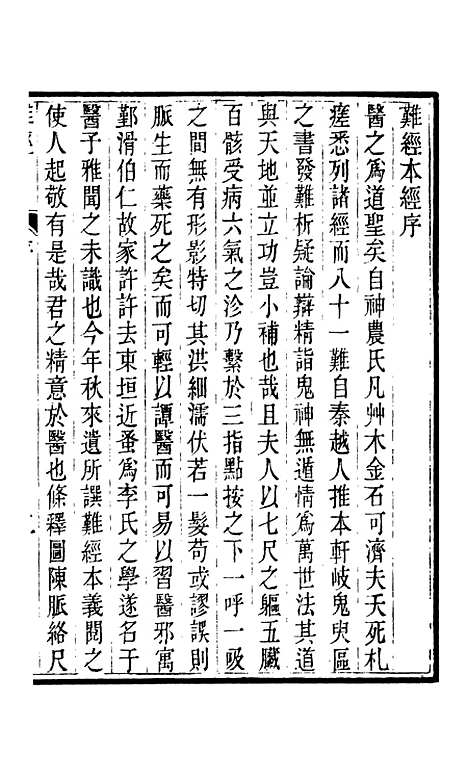 難經本經序
醫之爲道聖矣自神農氏凡艸木金石可濟夫夭死札
瘥悉列諸經而八十一難自秦越人推本軒岐鬼臾區
之書發難析疑論辯精詣鬼神無遁情爲萬世法其道
與天地並立功豈小補也哉且夫人以七尺之軀五臟
百骸受病六氣之沴乃繫於三指點按之下一呼一吸
之間無有形影特切其洪細濡伏若一髮苟或謬誤則
脈生而藥死之矣而可輕以譚醫而可易以習醫邪寓
鄞滑伯仁故家許許去東垣近蚤爲李氏之學遂名于
醫予雅聞之未識也今年秋來遺所譔難經本義閱之
使人起敬有是哉君之精意於醫也條釋圖陳脈絡尺